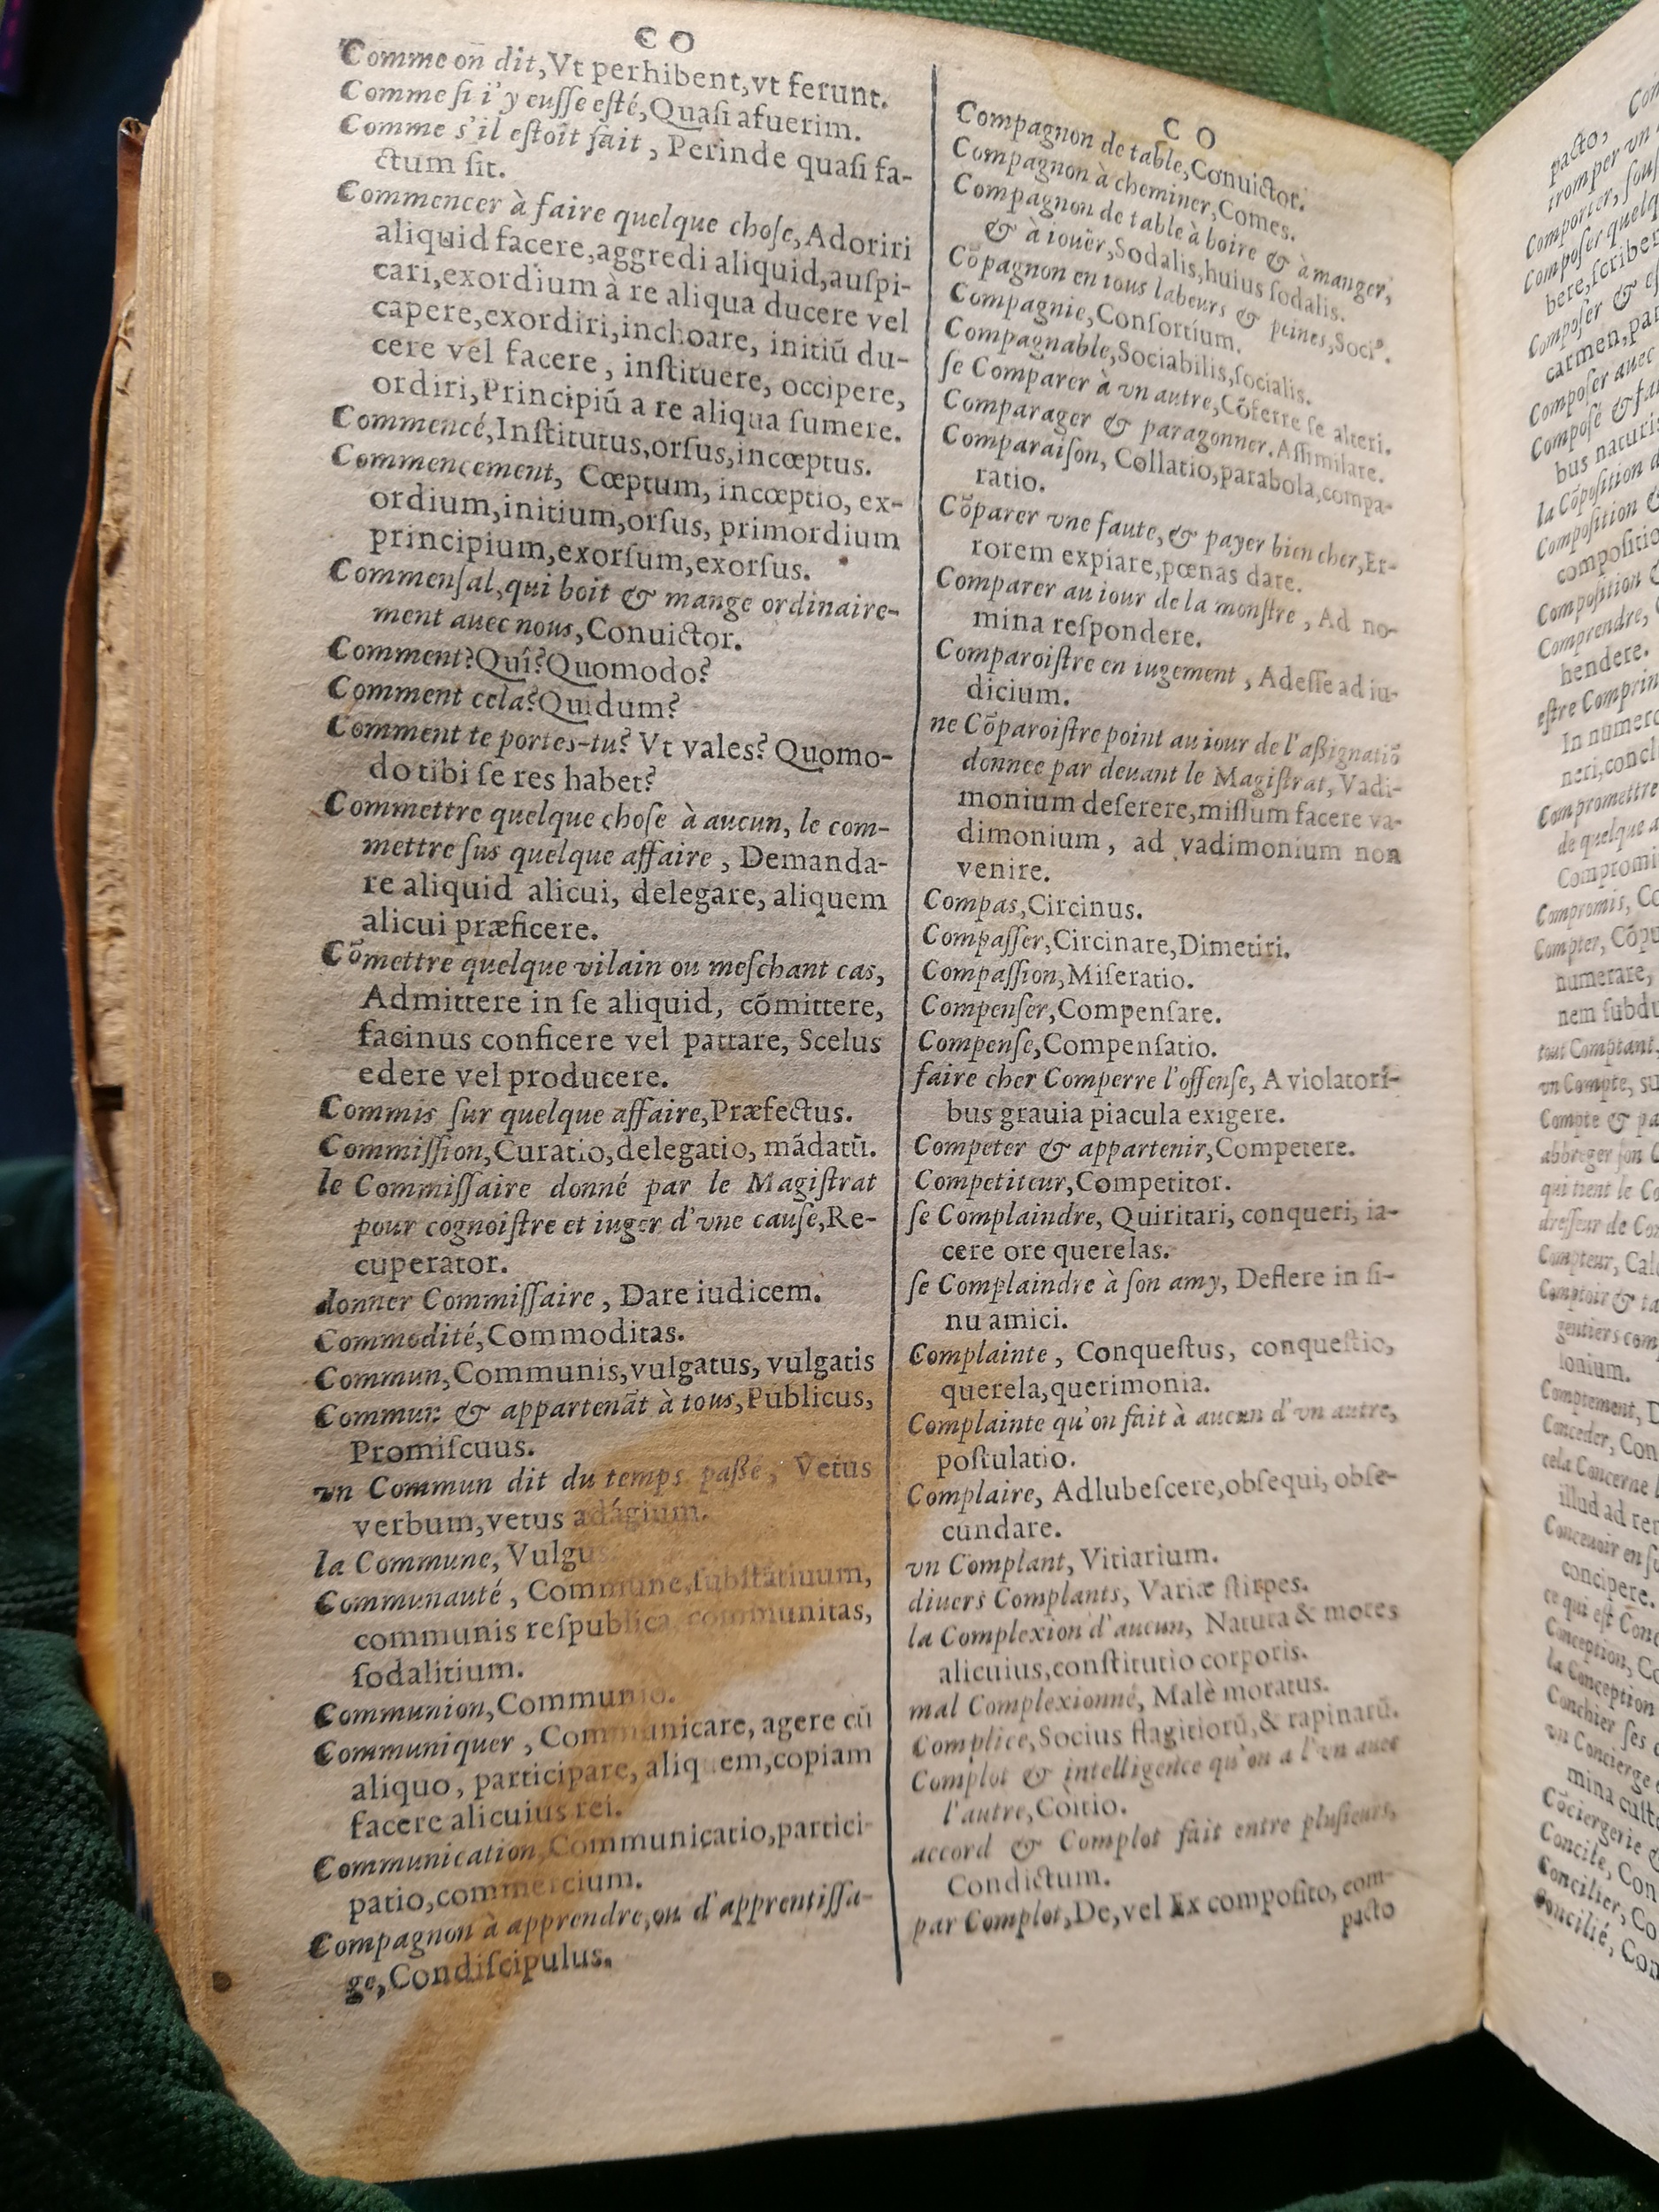 C O
Comme on dit,Vt perhibent,vt ferunt.
Comme ſi i'y euſſe eſté,Quaſi afuerim.
Comme s'il eſtoit fait , Perinde quaſi fa-
ctum ſit.
Commencer à faire quelque choſe,Adoriri
aliquid facere,aggredi aliquid,auſpi-
cari,exordium à re aliqua ducere vel
capere,exordiri,inchoare, initiũ du-
cere vel facere , inſtituere, occipere,
ordiri,Principiũ a re aliqua ſumere.
Commencé,Inſtitutus,orſus,incœptus.
Commencement, Cœptum, incœptio, ex-
ordium,initium,orſus, primordium
principium,exorſum,exorſus.
Commenſal,qui boit & mange ordinaire-
ment auec nous,Conuictor.
Comment?Quî?Quomodo?
Comment cela?Quidum?
Comment te portes-tu? Vt vales? Quomo-
do tibi ſe res habet?
Commettre quelque choſe à aucun, le com-
mettre ſus quelque affaire , Demanda-
re aliquid alicui, delegare, aliquem
alicui præficere.
Cõmettre quelque vilain ou meſchant cas,
Admittere in ſe aliquid, cõmittere,
facinus conficere vel patrare, Scelus
edere vel producere.
Commis ſur quelque affaire,Præfectus.
Commiſſion,Curatio,delegatio, mãdatũ.
le Commiſſaire donné par le Magiſtrat
pour cognoiſtre et iuger d'vne cauſe,Re-
cuperator.
donner Commiſſaire , Dare iudicem.
Commodité,Commoditas.
Commun,Communis,vulgatus, vulgatis
Commun & appartenãt à tous,Publicus,
Promiſcuus.
vn Commun dit du temps paßé, Vetus
verbum,vetus adágium.
la Commune, Vulgus
Communauté , Commune,ſubſtãtiuum,
communis reſpublica, communitas,
ſodalitium.
Communion,Communio.
Communiquer , Communicare, agere cũ
aliquo, participare, aliquem,copiam
facere alicuius rei.
Communication,Communicatio,partici-
patio,commercium.
Compagnon à apprendre,ou d'apprentiſſa-
ge,Condiſcipulus.
C O
Compagnon de table,Conuictor.
Compagnon à cheminer,Comes.
Compagnon de table à boire & à manger,
& à iouër,Sodalis,huius ſodalis.
Cõpagnon en tous labeurs & peines,Soci⁹.
Compagnie,Conſortium.
Compagnable,Sociabilis,ſocialis.
ſe Comparer à vn autre,Cõferre ſe alteri.
Comparager & paragonner,Aſſimilare.
Comparaiſon, Collatio,parabola,compa-
ratio.
Cõparer vne faute,& payer bien cher,Er-
rorem expiare,pœnas dare.
Comparer au iour de la monſtre , Ad no-
mina reſpondere.
Comparoiſtre en iugement , Adeſſe ad iu-
dicium.
ne Cõparoiſtre point au iour de l'aßignatiõ
donnee par deuant le Magiſtrat, Vadi-
monium deſerere,miſſum facere va-
dimonium , ad vadimonium non
venire.
Compas,Circinus.
Compaſſer,Circinare,Dimetiri.
Compaſſion,Miſeratio.
Compenſer,Compenſare.
Compenſe,Compenſatio.
faire cher Comperre l'offenſe, A violatori-
bus grauia piacula exigere.
Competer & appartenir,Competere.
Competiteur,Competitor.
ſe Complaindre, Quiritari, conqueri, ia-
cere ore querelas.
ſe Complaindre à ſon amy, Deflere in ſi-
nu amici.
Complainte , Conqueſtus, conqueſtio,
querela,querimonia.
Complainte qu'on fait à aucun d'vn autre,
poſtulatio.
Complaire, Adlubeſcere,obſequi, obſe-
cundare.
vn Complant, Vitiarium.
diuers Complants, Variæ ſtirpes.
la Complexion d'aucun, Natura & mores
alicuius,conſtitutio corporis.
mal Complexionné, Malè moratus.
Complice,Socius flagitiorũ,& rapinarũ.
Complot & intelligence qu'on a l'vn auec
l'autre,Coitio.
accord & Complot fait entre pluſieurs,
Condictum.
par Complot,De,vel Ex compoſito, com-
pacto
pacto,
tromper vn
Comporter,
Compoſer quelq
bere,ſcriben
Compoſer &
carmen,
Compoſer auec
Compoſé &
bus naturis
la Cõpoſition
Compoſition
compoſitio
Compoſition
Comprendre,
hendere.
eſtre Comprin
In numero
neri,concl
Compromettre
de quelque
Compromi
Compromis, Co
Compter, Cõpu
numerare,
nem ſubdu
tout Comptant,
vn Compte, ſu
Compte &
abbreger ſon C
qui tient le Co
dreſſeur de Co
Compteur, Calc
Comptoir &
gentiers com
lonium.
Comptement, D
Conceder, Con
cela Concerne
illud ad rem
Conceuoir en
concipere.
ce qui eſt Conc
Conception, Co
la Conception
Conchier ſes
vn Concierge
mina
Cõciergerie &
Concile, Con
Concilier, Co
Concilié, Con